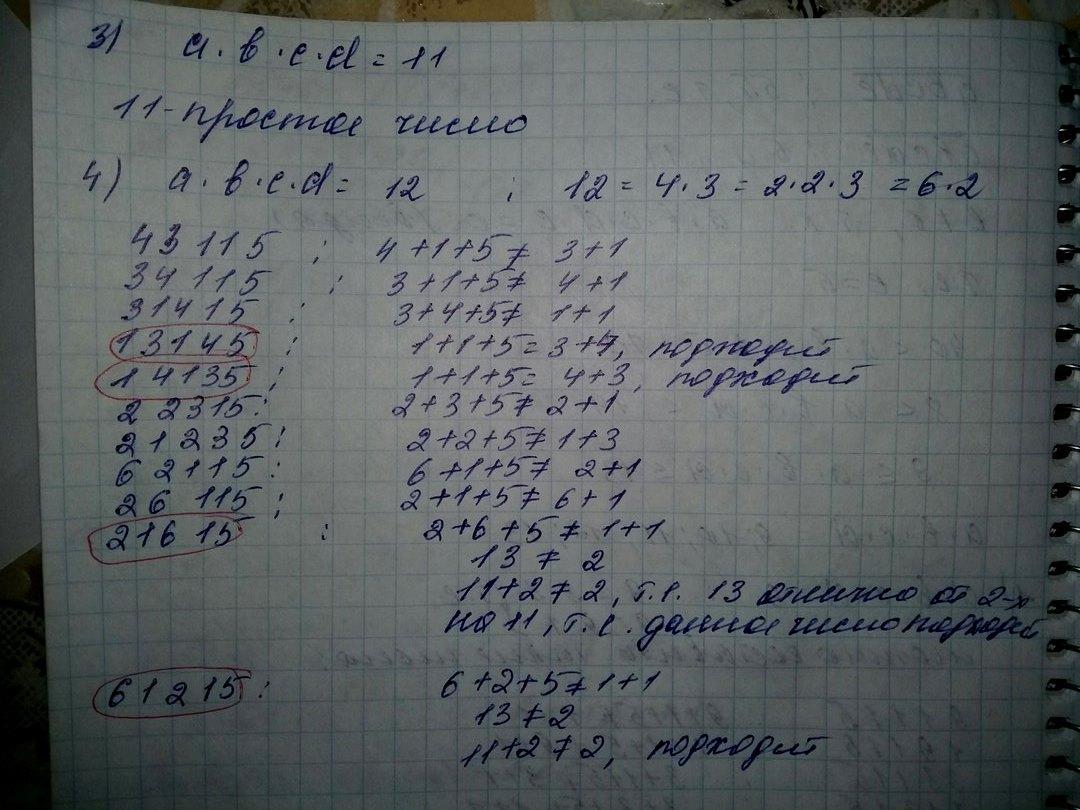 3) a·b·c·d = 11
11 - простое число
4) a·b·c·d = 12 ; 12 = 4·3 = 2·2·3 = 6·2
43115 ; 4+1+5 ≠ 3+1
34115 ; 3+1+5 ≠ 4+1
31415 ; 3+4+5 ≠ 1+1
13145 ; 1+1+5 = 3+4, подходит
14135 ; 1+1+5 = 4+3, подходит
22315 ; 2+3+5 ≠ 2+1
21235 ; 2+2+5 ≠ 1+3
62115 ; 6+1+5 ≠ 2+1
26115 ; 2+1+5 ≠ 6+1
21615 ; 2+6+5 ≠ 1+1
13 ≠ 2
11+2 ≠ 2, т.е. 13 отлично от 2-х
на 11, т.е. данное число подходит
61215 ; 6+2+5 ≠ 1+1
13 ≠ 2
11+2 ≠ 2, подходит